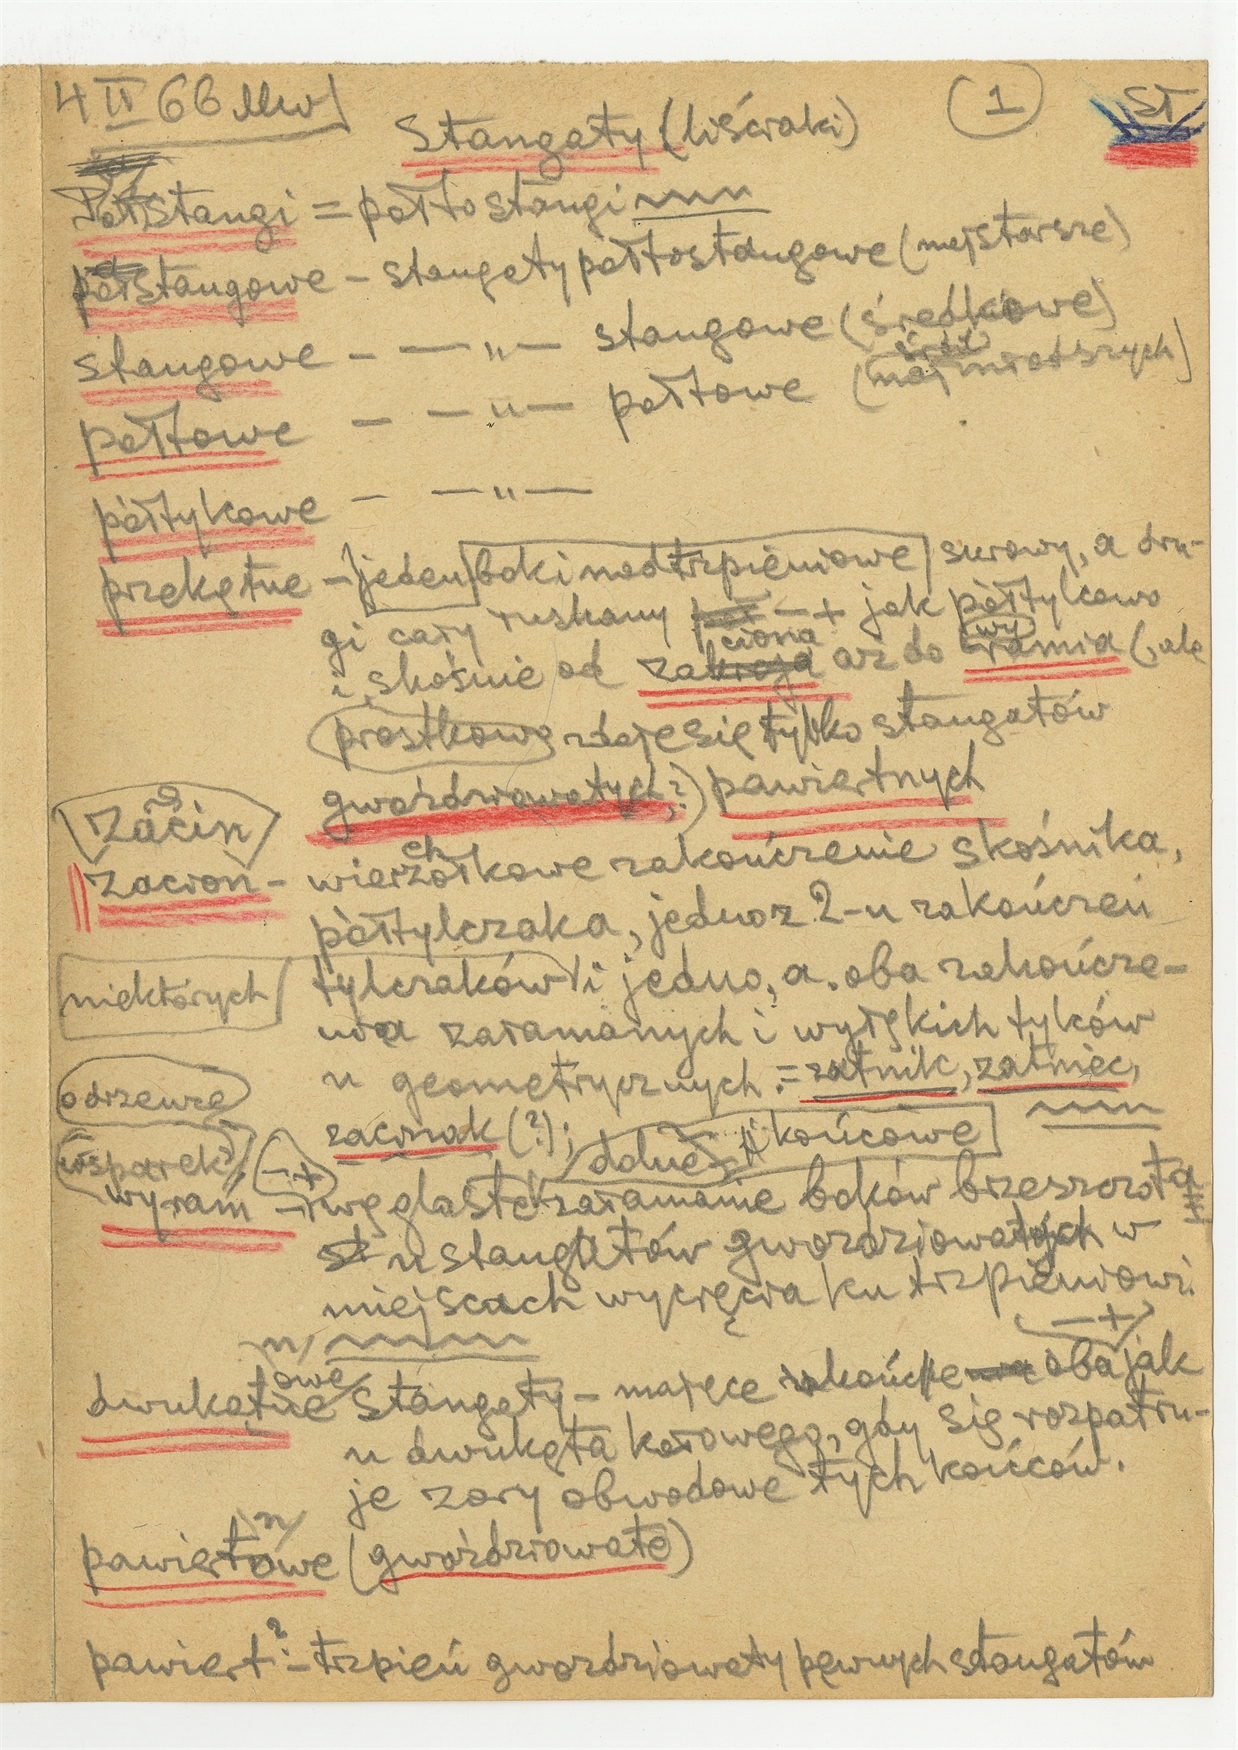 4 II 66 Mw
1
ST
Stangaty (liściaki)
Półstangi = połtostangi
półstangowe – stangaty połtostangowe (najstarsze)
stangowe – — „ — stangowe (średkowe)
połtowe – — „ — połtowe (najmłodszych)
półtykowe – — „ —
przekętne – jeden boki nadtrzpieniowe surowy, a dru-
gi cały łuskany –+ jak półtykowo
i skośnie od zaciona aż do wyramia (, ale
prostkowo zdaje się tylko stangatów
gwoździowatych?) pawiertnych
Zacin
Zacion – wierzchołkowe zakończenie skośnika,
półtylczaka, jedno z 2-u zakończeń
niektórych tylczaków i jedno, a. oba zakończe-
nia załamanych i wyłękich tylców
u geometrycznych .= zatnik, zatniec,
zacinak (?);
odrzewie
wsparek?
wyram –+ węglaste załamanie boków brzeszczota
dolne końcowe
u stangatów gwoździowatych w
miejscach wycięcia ku trzpieniowi
n
dwukątne owe stangaty – mające końce oba jak –+
u dwukąta kołowego, gdy się rozpatru-
je zary obwodowe tych końców.
n
pawiertowe (gwoździowate)
pawiert? – trzpień gwoździowaty pewnych stangatów